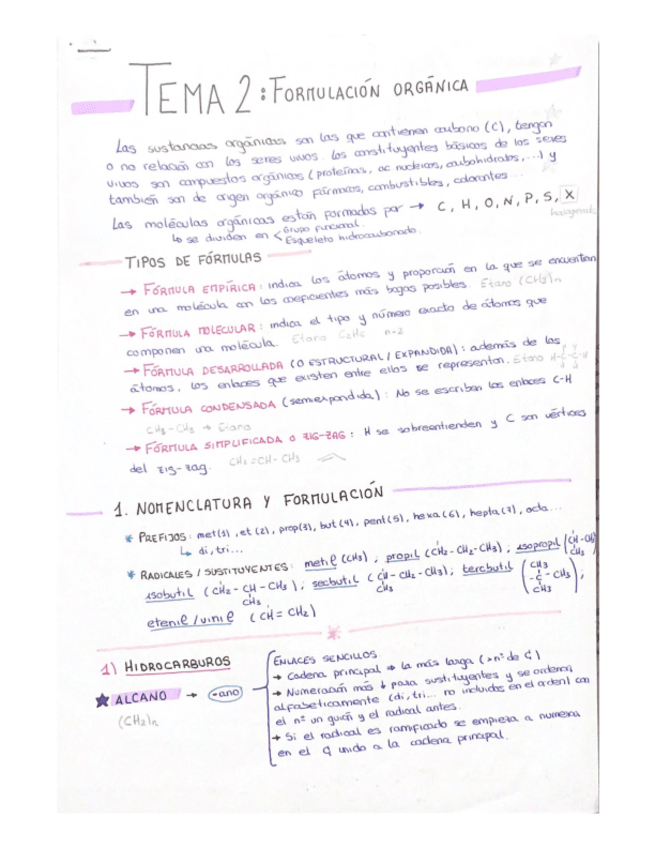 TEMA 2: FORMULACIÓN ORGÁNICA
Las sustancias orgánicas son las que contienen carbono (C), tengan
o no relación con los seres vivos. Los constituyentes básicos de los seres
vivos son compuestos orgánicos (proteínas, ac nucleicos, carbohidratos, ...) y
también son de origen orgánico fármacos, combustibles, colorantes...
Las moléculas orgánicas están formadas por → C, H, O, N, P, S, X
halógenos
↳ se dividen en < Grupo funcional.
Esqueleto hidrocarbonado.
TIPOS DE FÓRMULAS
→ FÓRMULA EMPÍRICA: indica los átomos y proporción en la que se encuentran
en una molécula con los coeficientes más bajos posibles. Etano (CH3)n
→ FÓRMULA MOLECULAR: indica el tipo y número exacto de átomos que
componen una molécula. Etano C2H6 n=2
→ FÓRMULA DESARROLLADA (O ESTRUCTURAL / EXPANDIDA): además de los
átomos, los enlaces que existen entre ellos se representan. Etano H-C-C-H
→ FÓRMULA CONDENSADA (semiexpandida): No se escriben los enlaces C-H
CH3-CH3 → Etano
→ FÓRMULA SIMPLIFICADA O ZIG-ZAG: H se sobreentienden y C son vértices
del zig-zag. CH2=CH-CH3
1. NOMENCLATURA Y FORMULACIÓN
* PREFIJOS: met(1), et(2), prop(3), but(4), pent(5), hexa(6), hepta(7), octa...
↳ di, tri...
* RADICALES / SUSTITUYENTES: metil (CH3), propil (CH2-CH2-CH3), isopropil (CH-CH3
CH3
isobutil (CH2-CH-CH3), secbutil (CH-CH2-CH3); tercbutil
CH3
CH3
CH3
-C-CH3
CH3
etenil/vinil (CH=CH2)
1) HIDROCARBUROS
★ ALCANO → -ano
(CH2)n
ENLACES SENCILLOS.
→ Cadena principal → la más larga (>nº de C)
→ Numeración más ↓ para sustituyentes y se ordenan
alfabéticamente (di, tri... no incluidos en el orden) con
el nº un guión y el radical antes.
→ Si el radical es ramificado se empieza a numerar
en el C unido a la cadena principal.